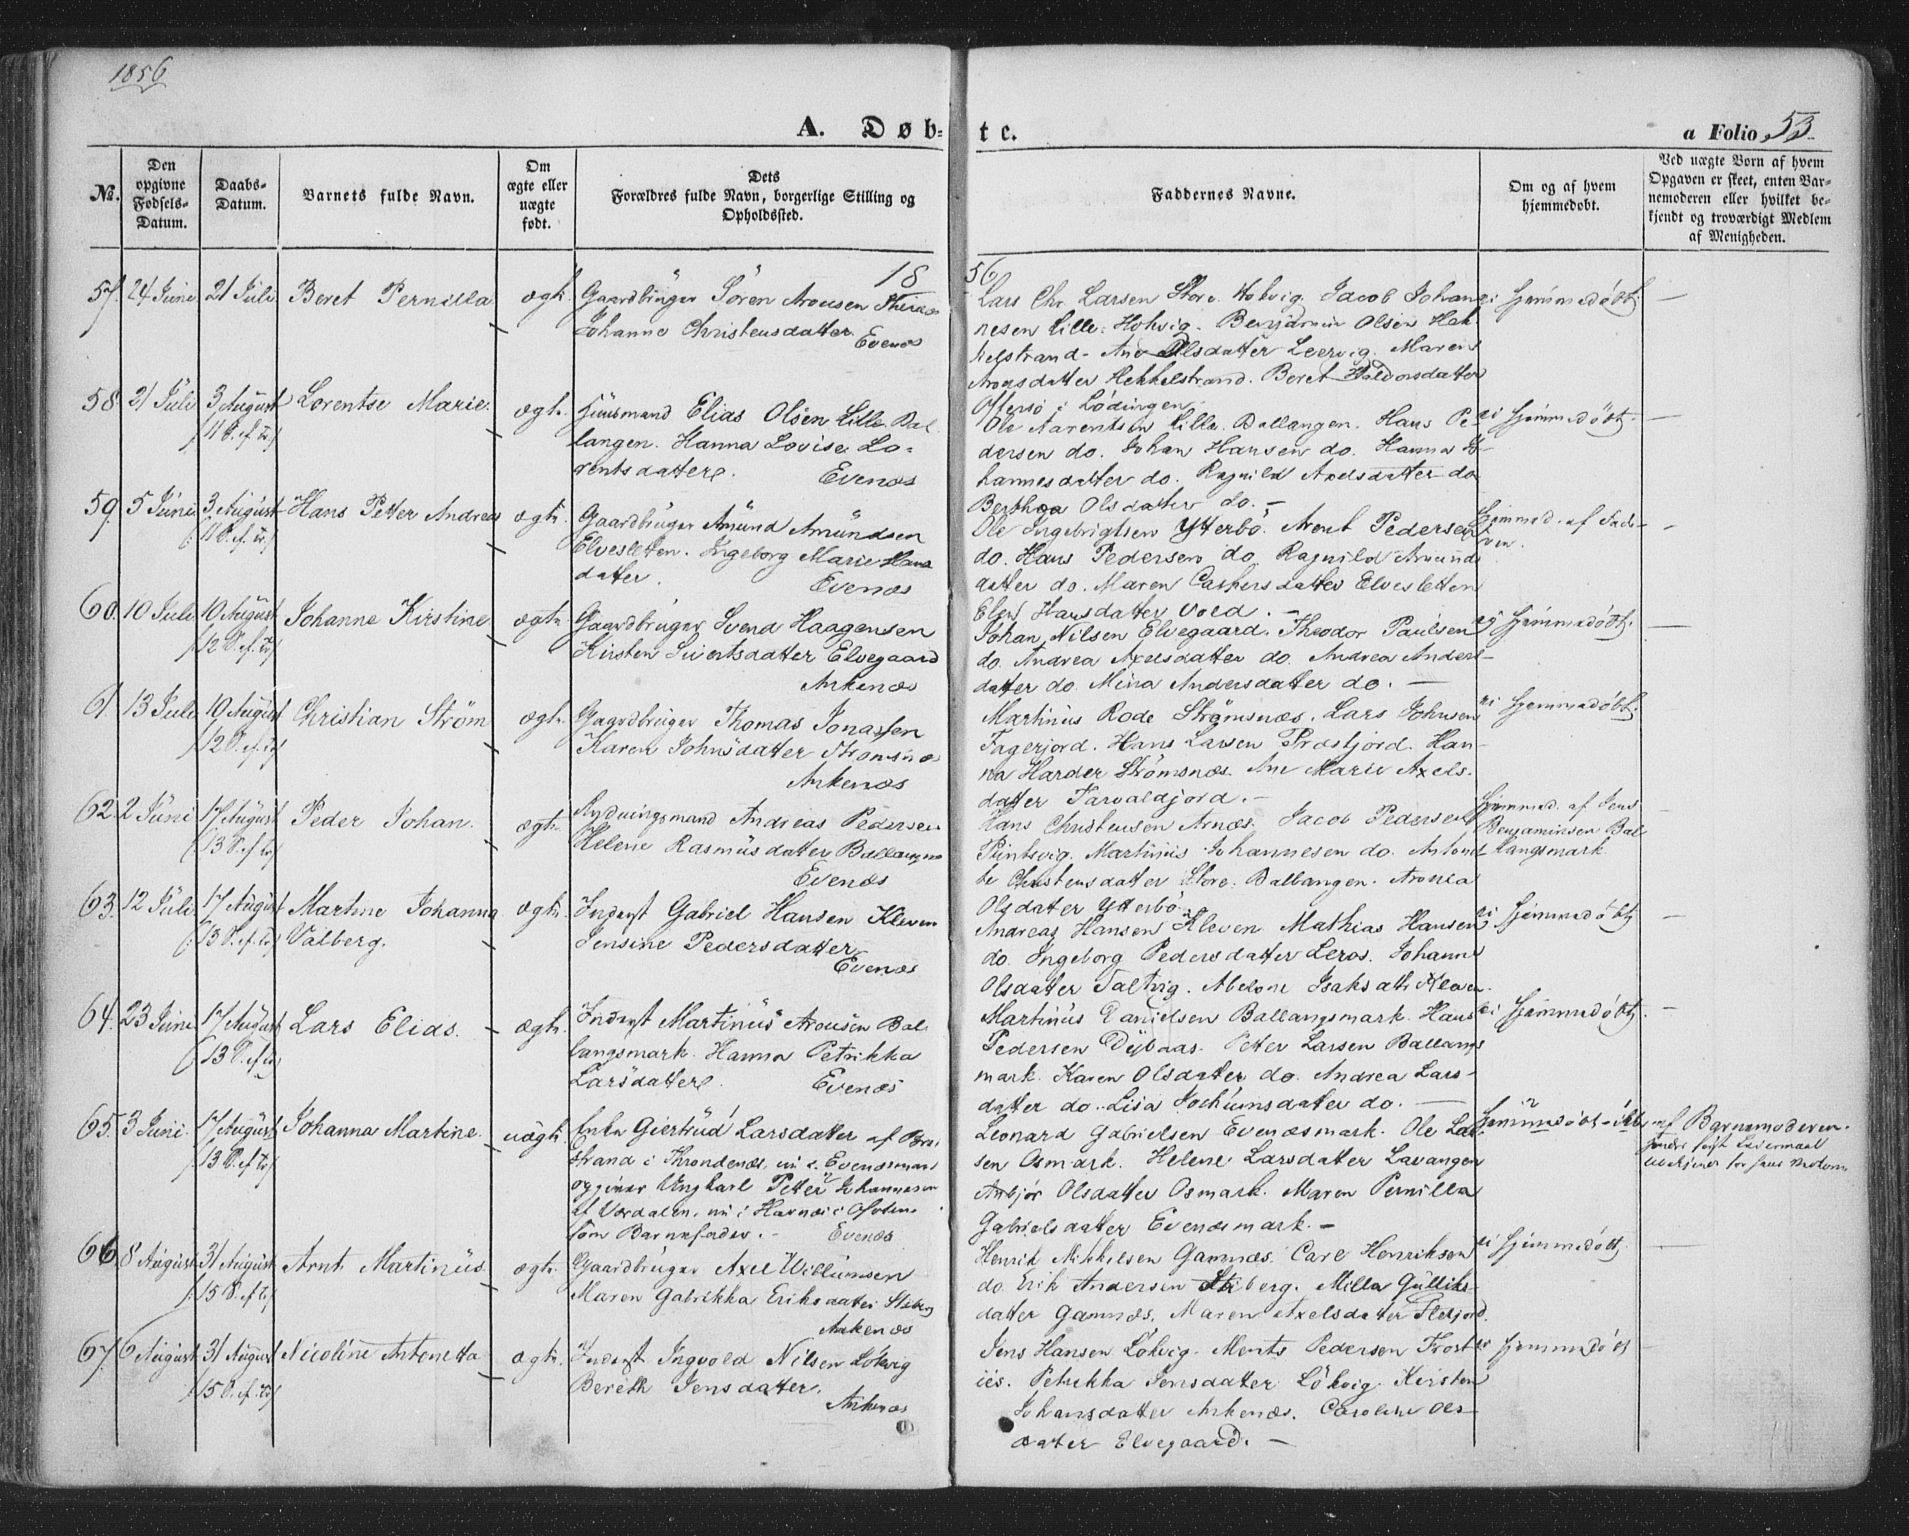 1856
A. Døb- te. a Folio 53
No. Den opgivne Fødsels-Datum. Daabs-Datum. Barnets fulde Navn. Om ægte eller uægte født. Dets Forældres fulde Navn, borgerlige Stilling og Opholdssted. Faddernes Navne. Om og af hvem hjemmedøbt. Ved uægte Børn af hvem Opgaven er skeet, enten Barnemoderen eller hvilket bekjendt og troværdigt Medlem af Menigheden.
18 56
57. 24 Juni 21 Juli Beret Pernilla ægte. Gaardbruger Sören Arensen
Johanne Christensdatter
Evenæs
Lars Chr. Larsen Store Hokvig. Jacob Johan-
nesen Lille: Hokvig. Benjamin Olsen Hek-
kelstrand. Ane Olsdatter Leervig. Maren
Aronsdatter Hekkelstrand. Beret Haldorsdatter
Offersö i Lödingen
ei hjemmedöbt. —
58. 21 Juli 3 August Lorentse Marie. ægte. Huusmand Elias Olsen Lille Bal-
(11 S. ef. Tr.) langen. Hanna Lovise Lo-
rentsdatter.
Evenæs
Ole Arentsen Lille Ballangen. Hans Pe-
dersen do. Johan Hansen do. Hanna Jo-
hannesdatter do. Ragnild Axelsdatter do
Berthea Olsdatter do. —
ei hjemmedöbt. —
59. 5 Juni 3 August Hans Petter Andreas ægte. Gaardbruger Amund Amundsen
(11 S. ef. Tr.) Elvesletten. Ingeborg Marie Hans
datter.
Evenæs
Ole Ingebrigtsen Ytterbö. Arent Pedersen
do. Hans Pedersen do. Ragnild Amunds
datter do. Maren Caspersdatter Elvesletten
Elen Hansdatter Vold. —
hjemmed. af Fade-
ren. —
60. 10 Juli 10 August Johanne Kirstine ægte. Gaardbruger Svend Haagensen
(12 S. ef. Tr.) Kirsten Sivertsdatter Elvegaard
Ankenæs
Johan Nilsen Elvegaard. Theodor Paulsen
do. Andrea Axelsdatter do. Andrea Anders-
datter do. Mina Andersdatter do. —
ei hjemmedöbt. —
61. 13 Juli 10 August Christian Ström ægte. Gaardbruger Thomas Jonassen
(12 S. ef. Tr.) Karen Johnsdatter Strömsnæs
Ankenæs
Martinus Rode Strömsnæs. Lars Johnsen
Fagerjord. Hans Larsen Præstjord. Han-
na Harder Strömsnæs. Ane Marie Axels-
datter Tarvaldjord. —
ei hjemmedöbt. —
62. 2 Juni 17 August Peder Johan. ægte. Rydningsmand Andreas Pedersen
(13 S. ef. Tr.) Helene Rasmusdatter
Evenæs
Hans Christensen Arnæs. Jacob Pedersen
Martinus Johannesen do. Antonet-
te Christensdatter Store: Ballangen.
Olsdatter Ytterbö.
hjemmed. af Jens
Benjaminsen Bal-
langsmark. —
63. 12 Juli 17 August Martine Johanna ægte. Inderst Gabriel Hansen Kleven
(13 S. ef. Tr.) Valberg. Jensine Pedersdatter
Evenæs
Andreas Hansen Kleven Mathias Hansen
do. Ingeborg Pedersdatter Leros. Johanne
Olsdatter Taltvig. Abelone Isaksdtr Kleven.
ei hjemmedöbt. —
64. 23 Juni 17 August Lars Elias. ægte. Inderst Martinus Arensen Bal-
(13 S. ef. Tr.) langsmark. Hanna Petrikka
Larsdatter.
Evenæs
Martinus Danielsen Ballangsmark. Hans
Pedersen Dybaas. Petter Larsen Ballangs
mark. Karen Olsdatter do. Andrea Lars-
datter do. Lisa Jochumsdatter do. —
ei hjemmedöbt. —
65. 3 Juni 17 August Johanna Martine. uægte. Enke Giertrud Larsdatter af
(13 S. ef. Tr.) strand i Throndenæs, nu i Evenæsmark
opgiver Ungkarl Petter Johannesen
af Værdalen, nu i Havnæs i Ofoten
som Barnefader. — Evenæs
Leonard Gabrielsen Evenæsmark. Ole Lar-
sen Osmark. Helene Larsdatter Lavangen
Anbjör Olsdatter Osmark. Maren Pernilla
Gabrielsdatter Evenæsmark. —
af Barnemoderen.
66. 8 August 31 August Arnt Martinus ægte. Gaardbruger Axel Willumsen
(15 S. ef. Tr.) Maren Gabrikka Eriksdatter Stiberg
Ankenæs
Henrik Mikkelsen Gamnæs. Carl Henriksen
do. Erik Andersen Stiberg. Milla Gulliks-
datter Gamnæs. Maren Axelsdatter
ei hjemmedöbt. —
67. 6 August 31 August Nicoline Antonetta ægte. Inderst Ingvold Nilsen Lökvig
(15 S. ef. Tr.) Bereth Jensdatter.
Ankenæs
Jens Hansen Lökvig. Ments Pedersen Frost-
iis. Petrikka Jensdatter Lökvig. Kirsten
Johansdatter Ankenæs. Caroline Ols-
datter Elvegaard. —
ei hjemmedöbt —